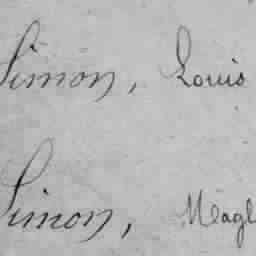 Simon, Louis
Simon, Meagl